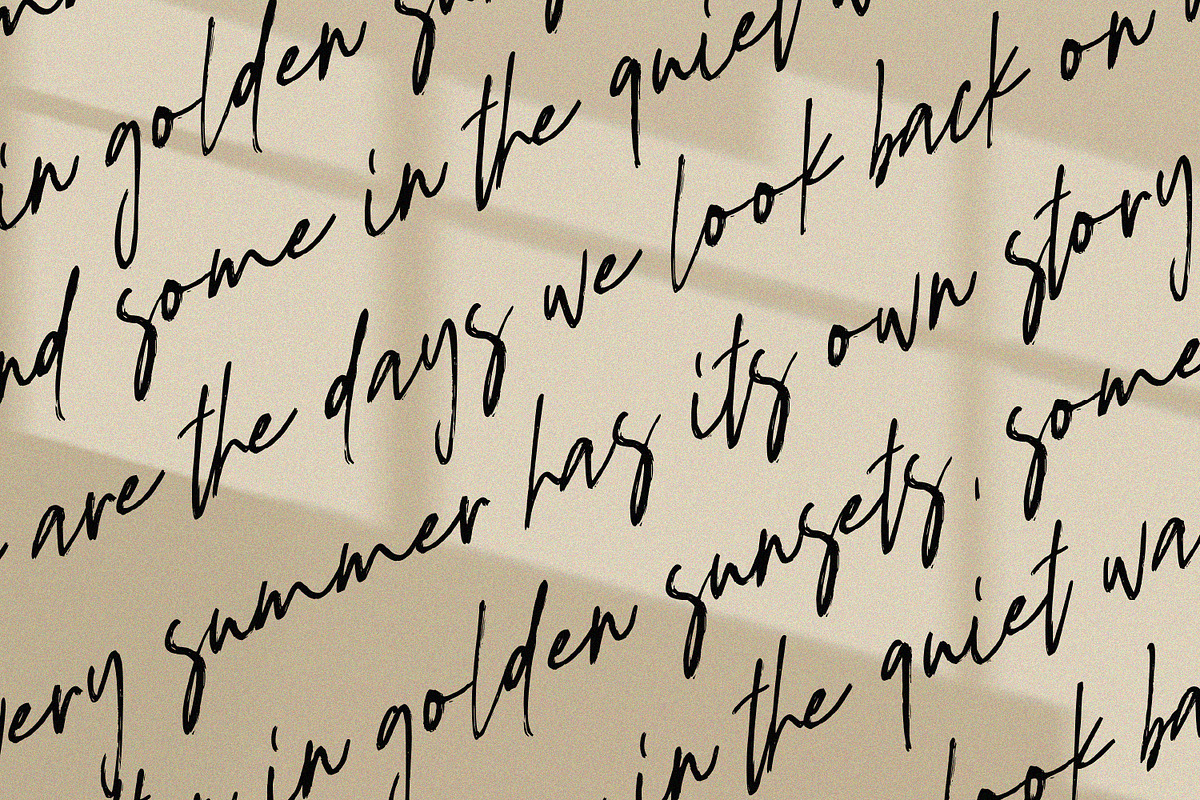 in golden sun
nd some in the quiet w
are the days we look back on
very summer has its own story
in golden sunsets, some
in the quiet wa
look ba